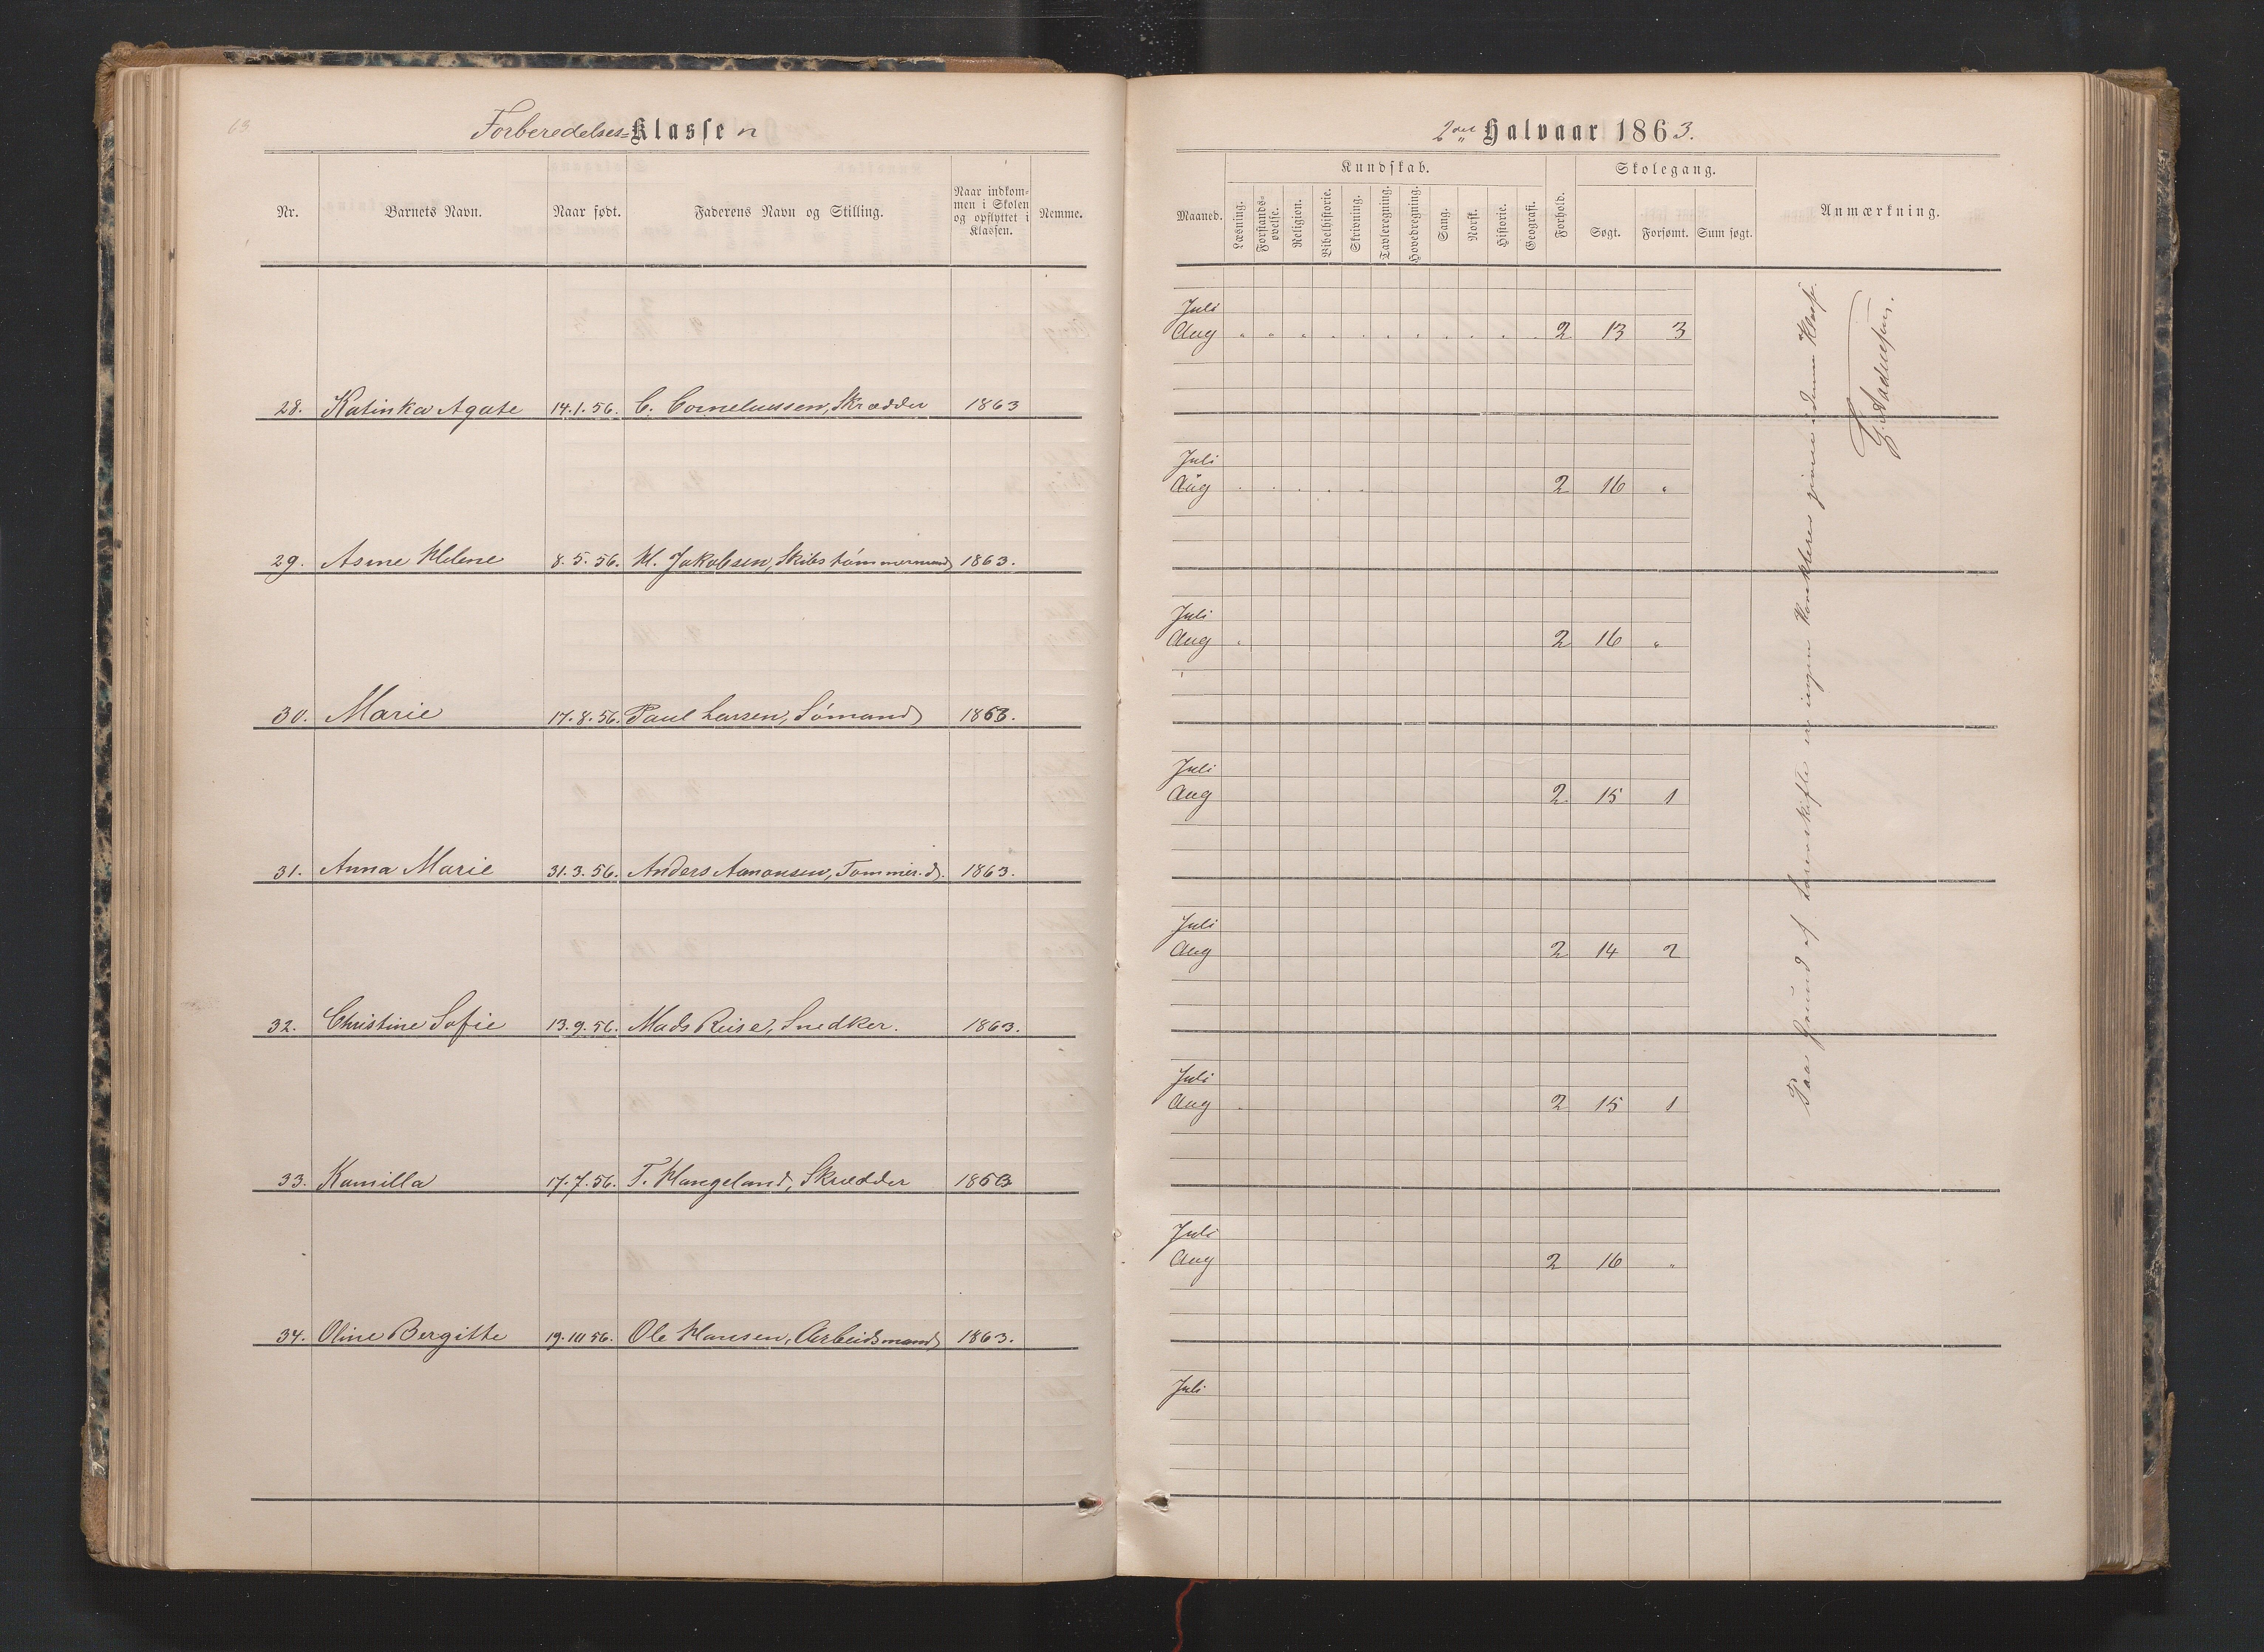 63.
Forberedelses-Klassen
Nr. Barnets Navn. Naar født. Faderens Navn og Stilling. Naar indkommen i Skolen og opflyttet i Klassen. Nemme.
28. Katinka Agate 14.1.56. C. Corneliussen, Skrædder 1863
29. Asine Helene 8.5.56. H. Jakobsen, Skibstømmermand 1863.
30. Marie 17.8.56. Paul Larsen, Sømand 1863.
31. Anna Marie 31.3.56. Anders Aanonsen, Tømmer.d. 1863.
32. Christine Sofie 13.9.56. Mads Reise, Snedker. 1863.
33. Kamilla 17.7.56. T. Hangeland, Skrædder 1863
34. Oline Bergitte 19.10 56. Ole Hansen, Arbeidsmand 1863.
2det Halvaar 1863.
Kundskab. Skolegang.
Maaned. Læsning. Forstandsøvelse. Religion. Bibelhistorie. Skrivning. Tavleregning. Hovedregning. Sang. Norsk. Historie. Geografi. Forhold. Søgt. Forsømt. Sum søgt. Anmærkning.
Juli
Aug " " " " " " " " " " " 2 13 3
Juli
Aug " " " " " 2 16 "
Juli
Aug " 2 16 "
Juli
Aug 2 15 1
Juli
Aug 2 14 2
Juli
Aug " 2 15 1
Juli
Aug 2 16 "
Juli
Paa Grund af Lærerskifte er ingen Karakterer givne i denne Klasse.